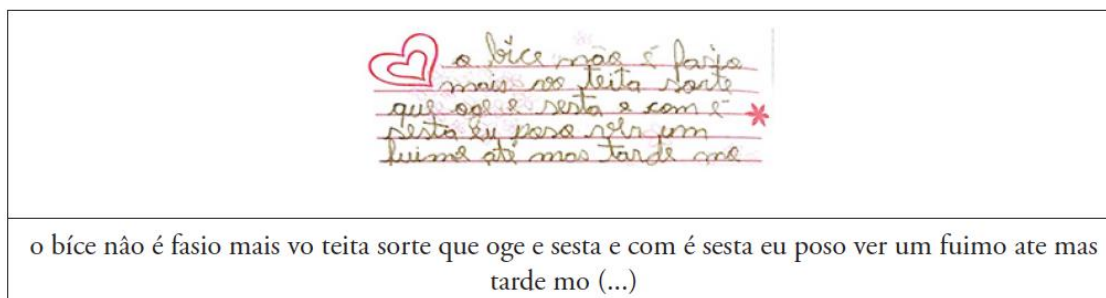 o bíce não é fasio
mais vo teita sorte
que oge e sesta e com é
sesta eu poso ver um
fuimo ate mas tarde mo
o bíce nâo é fasio mais vo teita sorte que oge e sesta e com é sesta eu poso ver um fuimo ate mas
tarde mo (...)